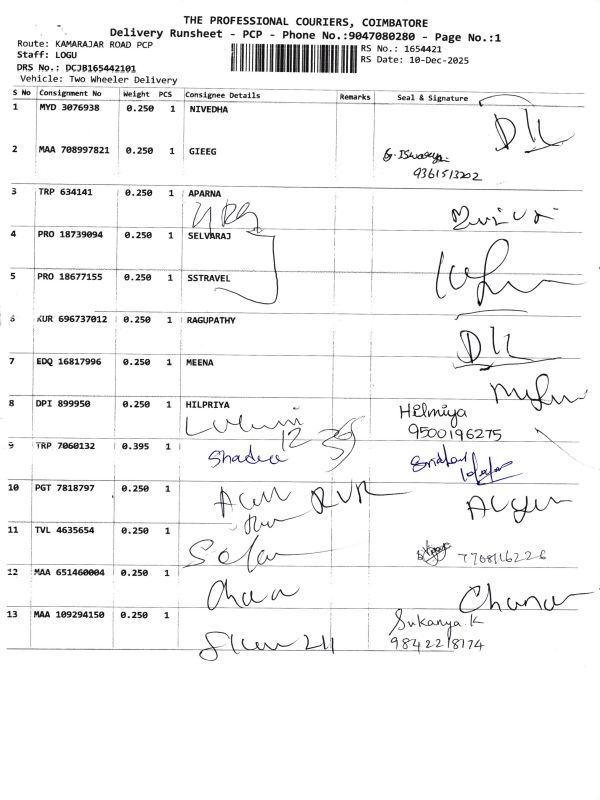 THE PROFESSIONAL COURIERS, COIMBATORE
Delivery Runsheet - PCP - Phone No.:9047080280 - Page No.:1
Route: KAMARAJAR ROAD PCP
Staff: LOGU
DRS No.: DCJB165442101
Vehicle: Two Wheeler Delivery
RS No.: 1654421
RS Date: 10-Dec-2025
S No Consignment No Weight PCS Consignee Details Remarks Seal & Signature
1 MYD 3076938 0.250 1 NIVEDHA
2 MAA 708997821 0.250 1 GIEEG
9361513202
3 TRP 634141 0.250 1 APARNA
4 PRO 18739094 0.250 1 SELVARAJ
5 PRO 18677155 0.250 1 SSTRAVEL
6 KUR 696737012 0.250 1 RAGUPATHY
7 EDQ 16817996 0.250 1 MEENA
8 DPI 899950 0.250 1 HILPRIYA Hilmiya
9500196275
9 TRP 7060132 0.395 1
10 PGT 7818797 0.250 1
11 TVL 4635654 0.250 1
7708116226
12 MAA 651460004 0.250 1
13 MAA 109294150 0.250 1 Sukanya.K
9842218174